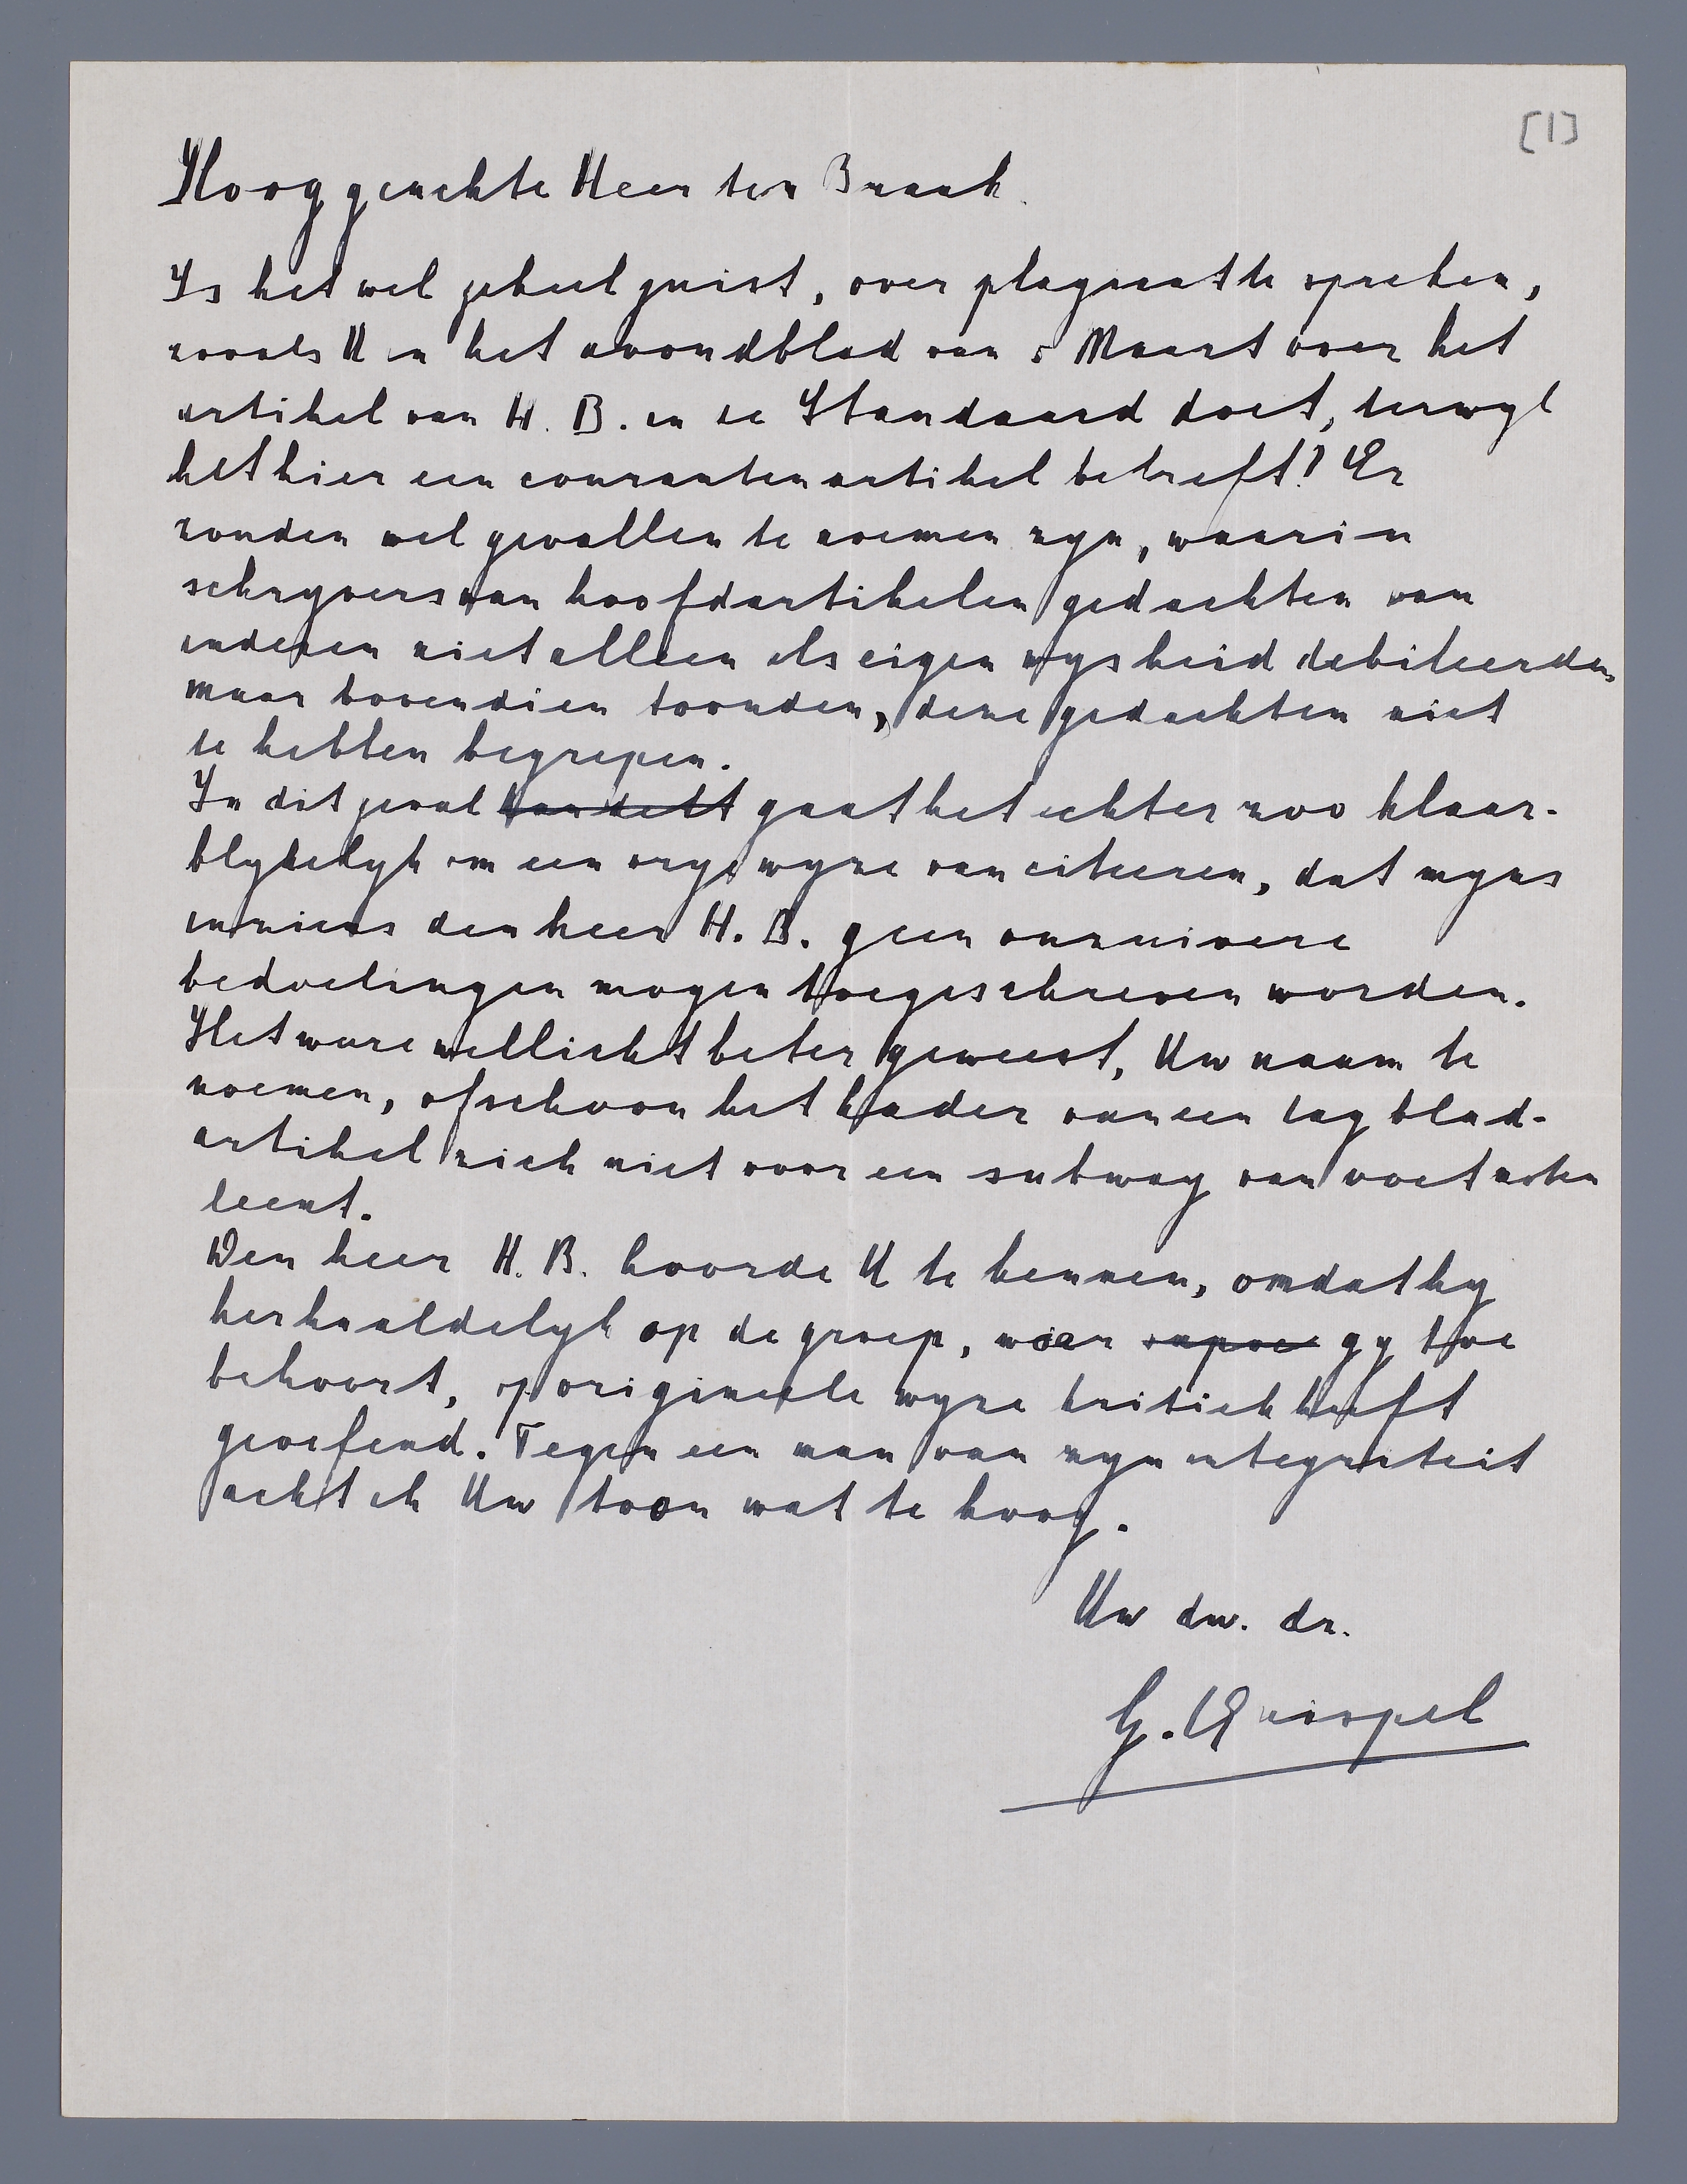 [1]
Hooggeachte Heer ter Braak.
Is het wel geheel juist, over plagiaat te spreken,
zooals U in het avondblad van 5 Maart over het
artikel van H. B. in de Standaard doet, terwyl
het hier een courantenartikel betreft? Er
zouden wel gevallen te noemen zyn, waarin
schryvers van hoofdartikelen gedachten van
anderen niet alleen als eigen wysheid debiteerden,
maar bovendien toonden, deze gedachten niet
te hebben begrepen.
In dit geval handelt gaat het echter zoo klaar-
blykelyk om een vrye wyze van citeeren, dat myns
inziens den heer H. B. geen onzuivere
bedoelingen mogen toegeschreven worden.
Het ware wellicht beter geweest, Uw naam te
noemen, ofschoon het kader van een dagblad-
artikel zich niet voor een subway van voetnoten
leent.
Den heer H. B. hoorde U te kennen, omdat hy
herhaaldelyk op de groep, waar gy toe
behoort, op origineele wyze kritiek heeft
geoefend. Tegen een man van zyn integriteit
acht ik Uw toon wat te hoog.
Uw dw. dr.
G. Quispel